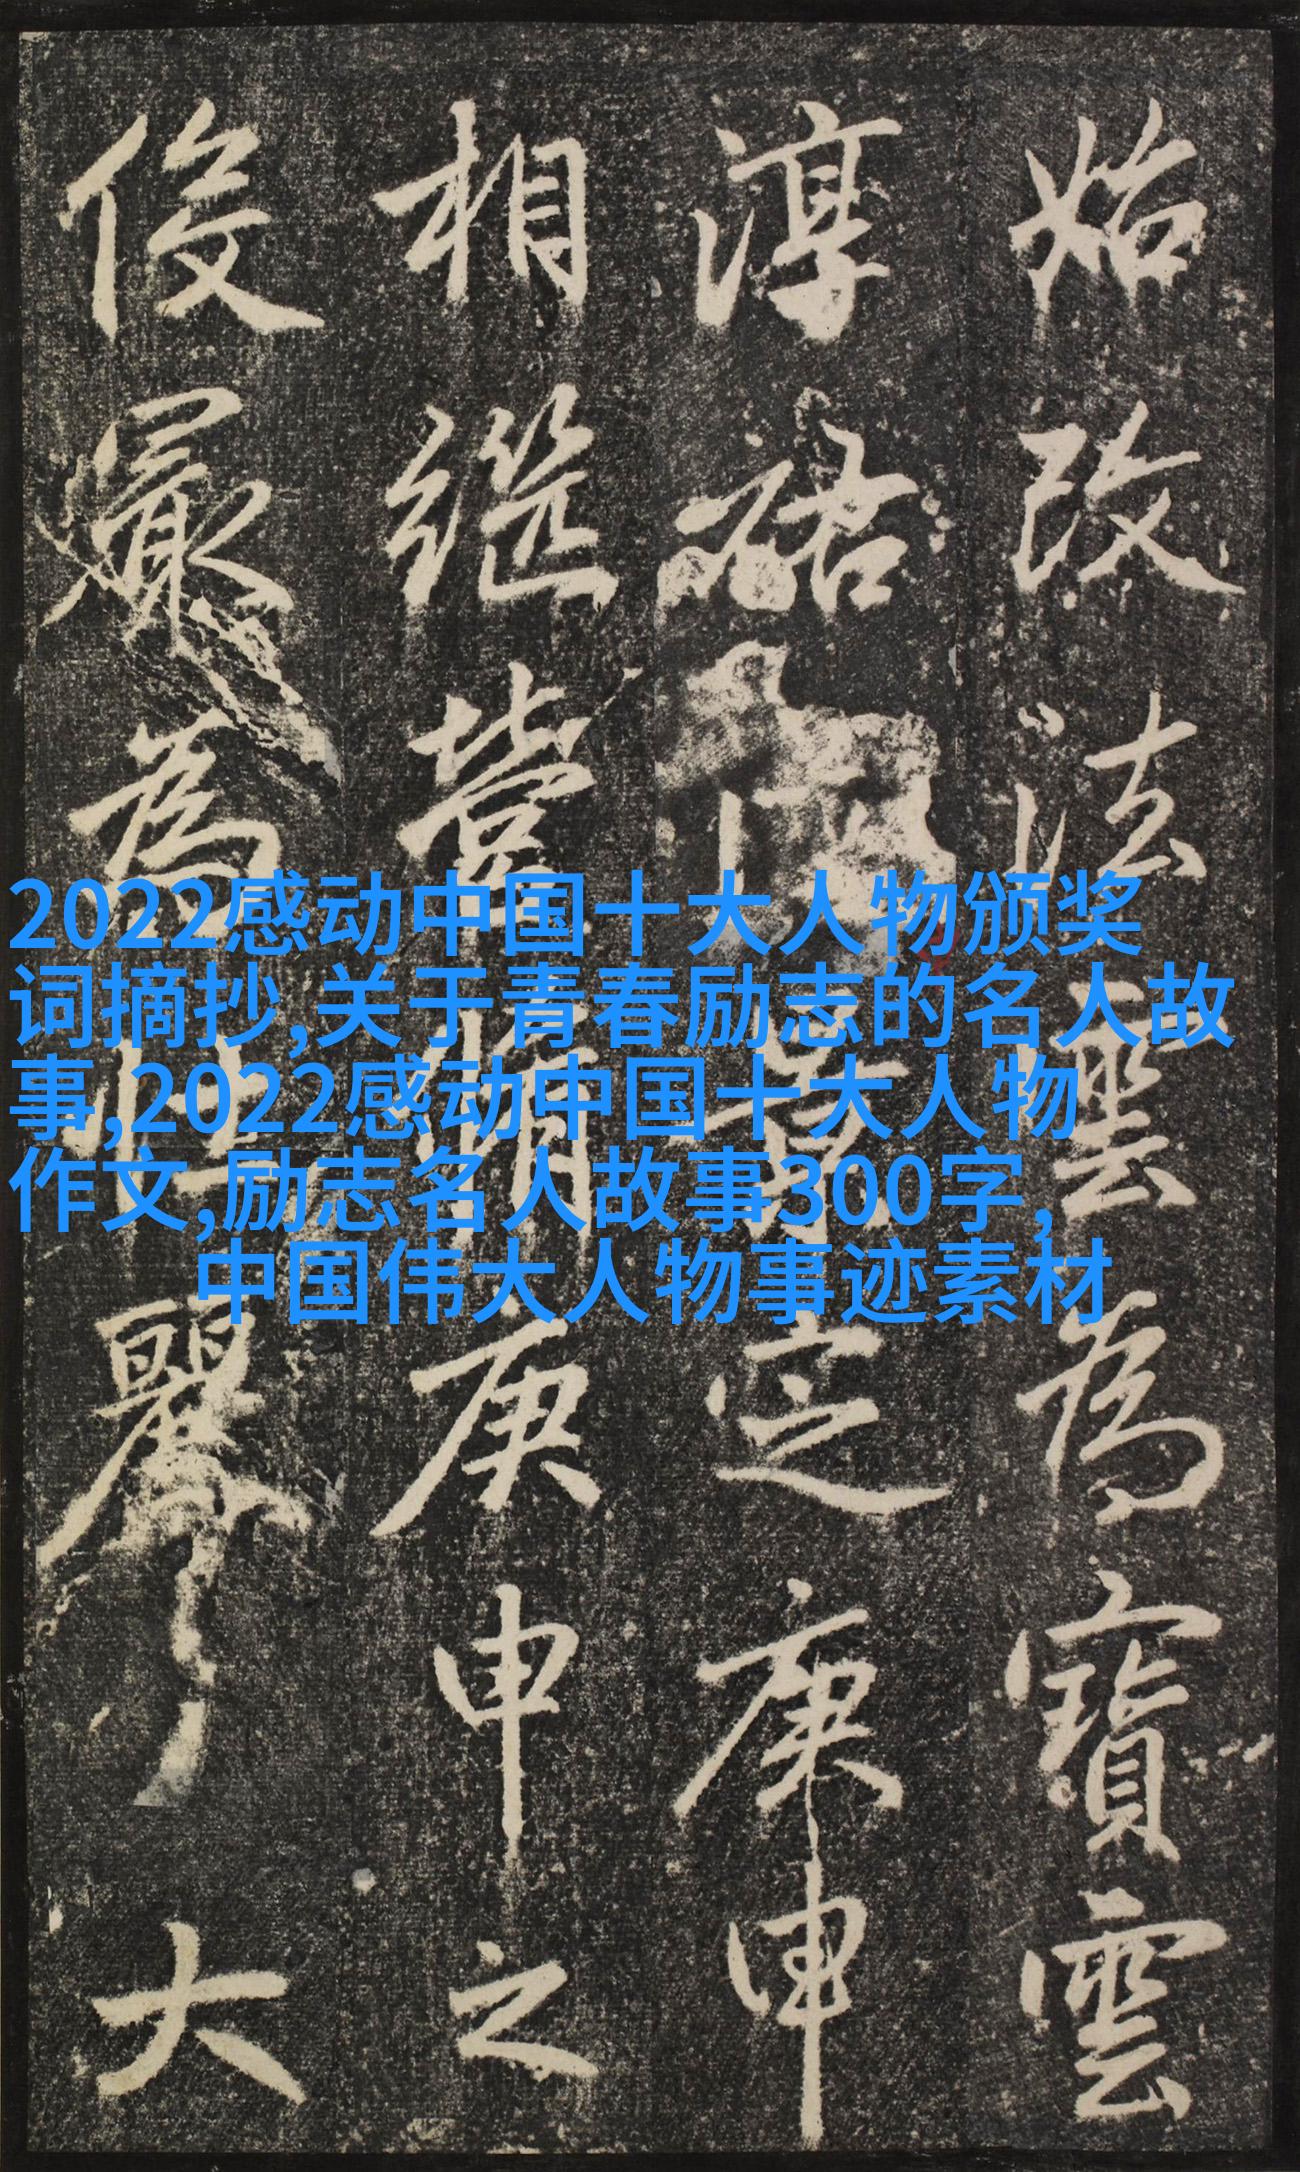 始改法雲為寶雲
淳祐定庚申
相继嘗庚申之
俊最為麗大
2022感动中国十大人物颁奖
词摘抄,关于青春励志的名人故
事,2022感动中国十大人物
作文,励志名人故事300字,
中国伟大人物事迹素材